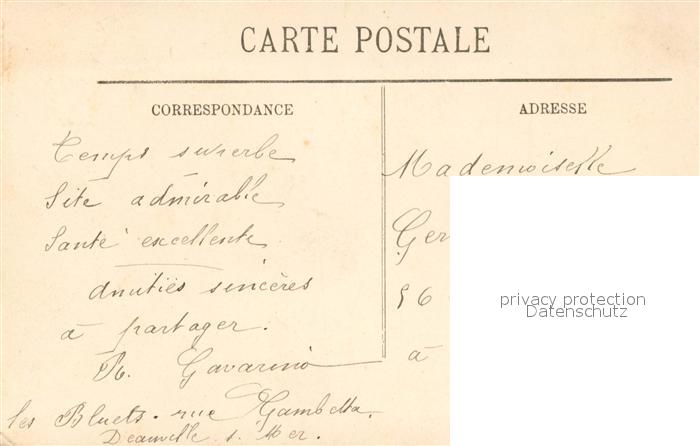 CARTE POSTALE
CORRESPONDANCE
Temps superbe
Site admirable
Santé excellente
Amitiés sincères
à partager.
R. Gavarino
les Bluets. rue Gambetta.
Deauville s. Mer.
ADRESSE
Mademoiselle
Ger
56
à
privacy protection
Datenschutz